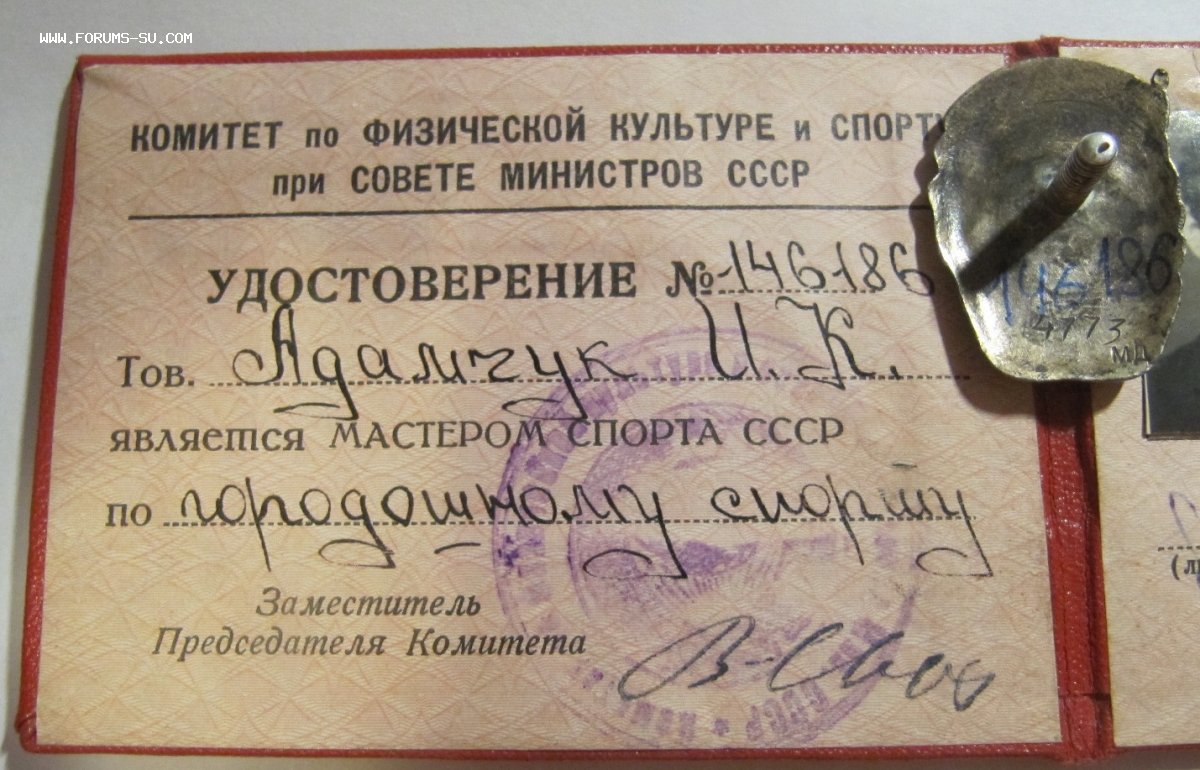 www.forums-su.com
КОМИТЕТ по ФИЗИЧЕСКОЙ КУЛЬТУРЕ и СПОРТУ
при СОВЕТЕ МИНИСТРОВ СССР
УДОСТОВЕРЕНИЕ № 146186
Тов. Адамчук И. К.
является МАСТЕРОМ СПОРТА СССР
по городошному спорту
Заместитель
Председателя Комитета
146186
4773
МД
СССР